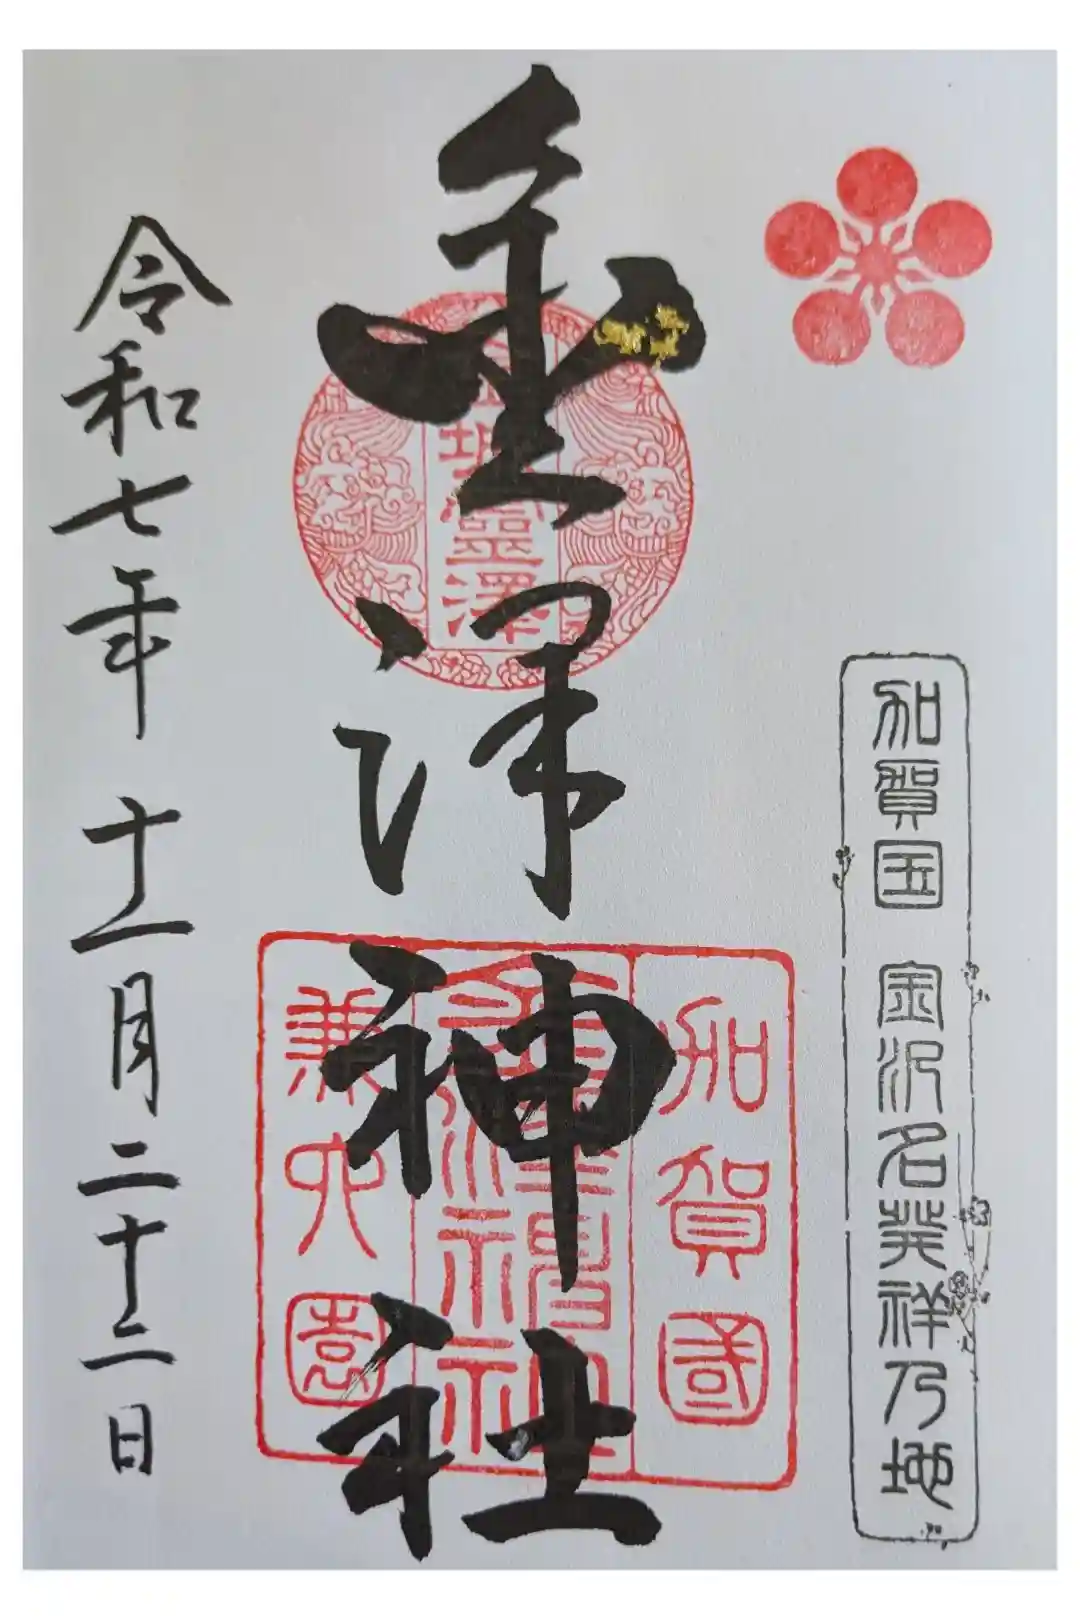 加賀国 金沢名発祥乃地
金澤神社
金城霊澤
加賀國
金澤神社
兼六園
令和七年十一月二十二日